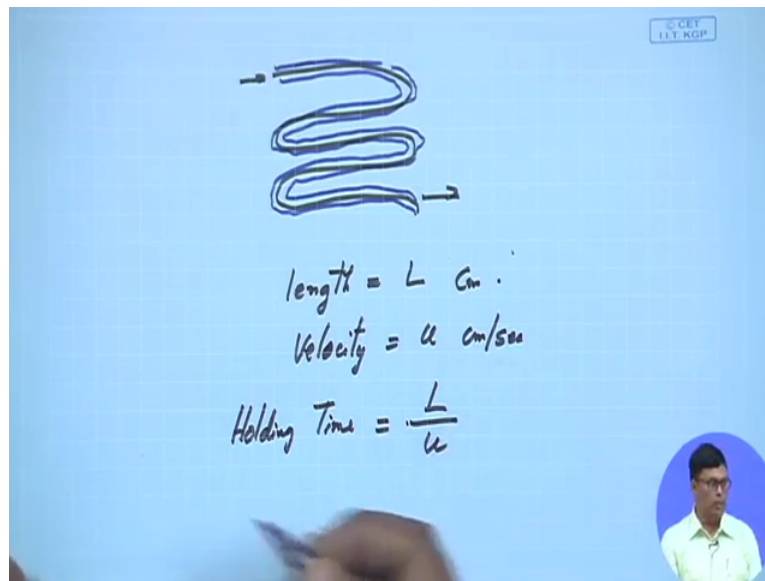 © CET
I.I.T. KGP
length = L cm.
Velocity = u cm/sec
Holding Time = L/u